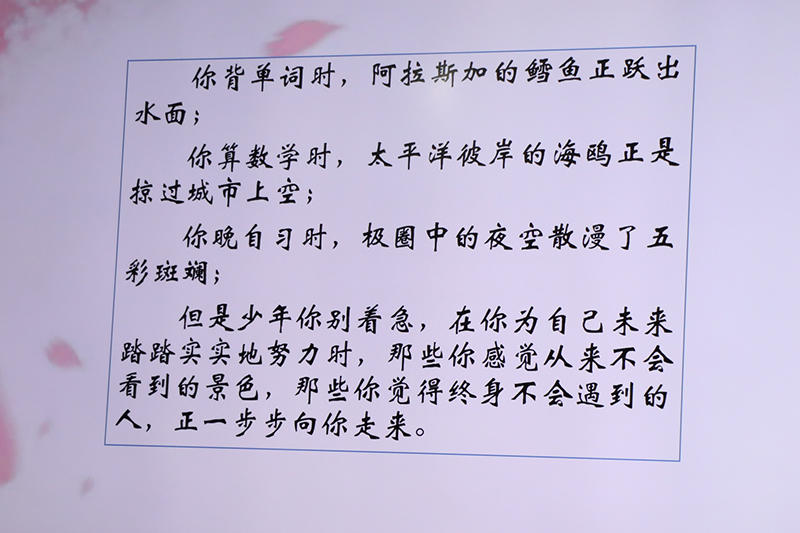 你背单词时，阿拉斯加的鳕鱼正跃出
水面；
你算数学时，太平洋彼岸的海鸥正是
掠过城市上空；
你晚自习时，极圈中的夜空散漫了五
彩斑斓；
但是少年你别着急，在你为自己未来
踏踏实实地努力时，那些你感觉从来不会
看到的景色，那些你觉得终身不会遇到的
人，正一步步向你走来。